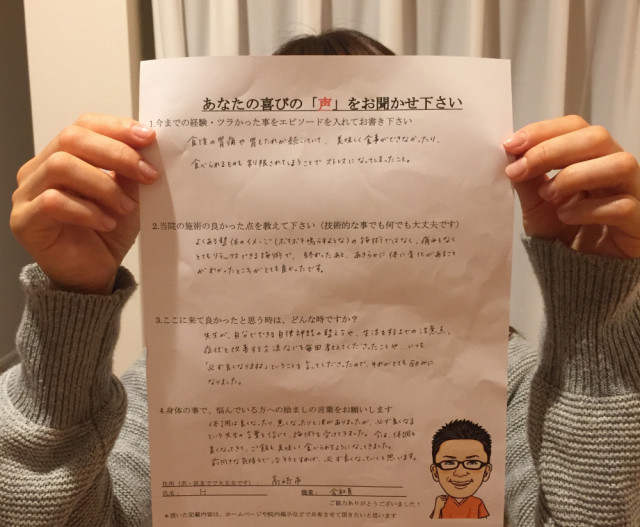 あなたの喜びの「声」をお聞かせ下さい
1.今までの経験・ツラかった事をエピソードを入れてお書き下さい
食後の胃痛や胃もたれが続いていて、美味しく食事ができなかったり、
食べられるものも制限されてしまうことでストレスになってしまったこと。
2.当院の施術の良かった点を教えて下さい（技術的な事でも何でも大丈夫です）
よくある整体のイメージ(ボキボキ鳴らすような)の施術ではなく、痛みもなく
とてもリラックスできる施術で、終わったあと、あきらかに体に変化があること
がわかったところがとても良かったです。
3.ここに来て良かったと思う時は、どんな時ですか？
先生が、自分でできる自律神経の整え方や、生活する上での注意点、
症状を改善する方法などを毎回教えてくださったことや、いつも
「必ず良くなりますよ」ということを言ってくださったので、それがとても励みに
なりました。
4.身体の事で、悩んでいる方への励ましの言葉をお願いします
体調は良くなったり、悪くなったりと波がありましたが、必ず良くなる
という先生の言葉を信じて、施術を受けてきました。今は、体調も
良くなってきて、ご飯も美味しく食べられるようになってきました。
前向きな気持ちで、治療をすれば、必ず良くなっていくと思います。
住所（市・区まで大丈夫です）： 高崎市
氏名： H 職業： 会社員
ご協力ありがとうございました！
＊頂いた記載内容は、ホームページや院内掲示などで共有させて頂きたいと思います